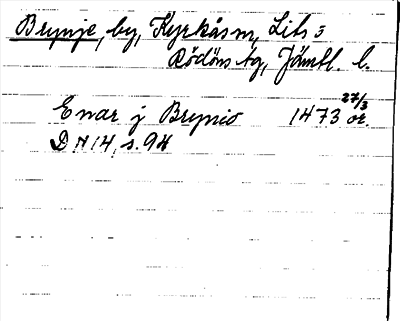 Brynje, by, Kyrkåsm, Lits s
Rödöns tg, Jämtl. l.
Enar j Brynio 1473 27/3 or.
DN 14, s. 94